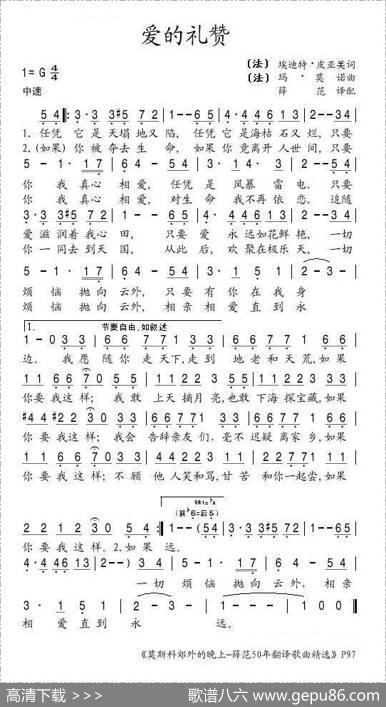 爱的礼赞
(法) 埃迪特·皮亚芙词
1=G 4/4 (法) 玛·莫诺曲
中速 薛范译配
5 4 ‖: 3 · 3 3 #5 7 2 | 1 – – 6 5 | 4 · 4 4 6 1 3 | 2 – – 3 4 |
1. 任凭 它是天塌地又陷, 任凭 它是海枯石又烂, 只要
2. (如果) 你被夺去生命, 如果 你竟离开人世间, 只要
5 – 1 · 1 7 | 6 – 5 4 | 5 – 1 · 1 7 | 6 – 5 4 |
你我真心相爱, 任凭是风暴雷电. 只要
你我真心相爱, 对生命我不再依恋, 追随
3 · 3 3 #5 7 2 | 1 – – 6 5 | 4 · 4 4 6 1 3 | 2 – – 3 4 |
爱滋润着我心田, 只要爱永远如花鲜艳, 一切
你一同去到天国, 从此后, 欢聚在极乐天, 一切
5 – 1 · 1 7 | 6 – 5 4 | 3 · 1 5 1 | 2 – – – |
烦恼抛向云外, 只要有你在我身
烦恼抛向云外, 相亲相爱直到永
1. 节奏自由,如叙述
1 – 0 3 3 | 6 6 7 7 1 3 3 | 6 6 7 7 1 6 6 |
边. 我愿随你走天下,走到地老和天荒,如果
1 1 6 6 7 0 5 5 | 1 1 2 2 3 5 5 | 1 1 2 2 3 3 3 |
你要我这样; 我敢上天摘月亮,也敢下海探宝藏,如果
#4 4 #2 2 3 0 3 3 | 6 6 7 7 1 3 3 | 6 6 7 7 1 6 6 |
你要我这样; 我会告辞亲友们, 毫不迟疑离家乡, 如果
1 1 6 6 7 0 3 3 | 6 6 7 7 1 3 3 | 6 6 7 7 1 1 1 |
你要我这样; 不顾他人笑和骂, 甘苦和你一起尝, 如果
(前♪6=后5)
2 2 1 2 3 0 5 4 :‖ 1 – – (5 4 | 3 · 3 3 #5 7 2 | 1 – – 6 5 |
你要我这样. 2. 如果远.
4 · 4 4 6 1 3 | 2 – – ) 3 4 | 5 – 1 · 1 7 | 6 – 5 4 |
一切烦恼抛向云外, 相亲
3 · 1 5 1 | 2 – – – | 1 – – – | 1 – – – ‖
相爱直到永远.
《莫斯科郊外的晚上–薛范50年翻译歌曲精选》P97
高清下载 >>> 歌谱八六 www.gepu86.com